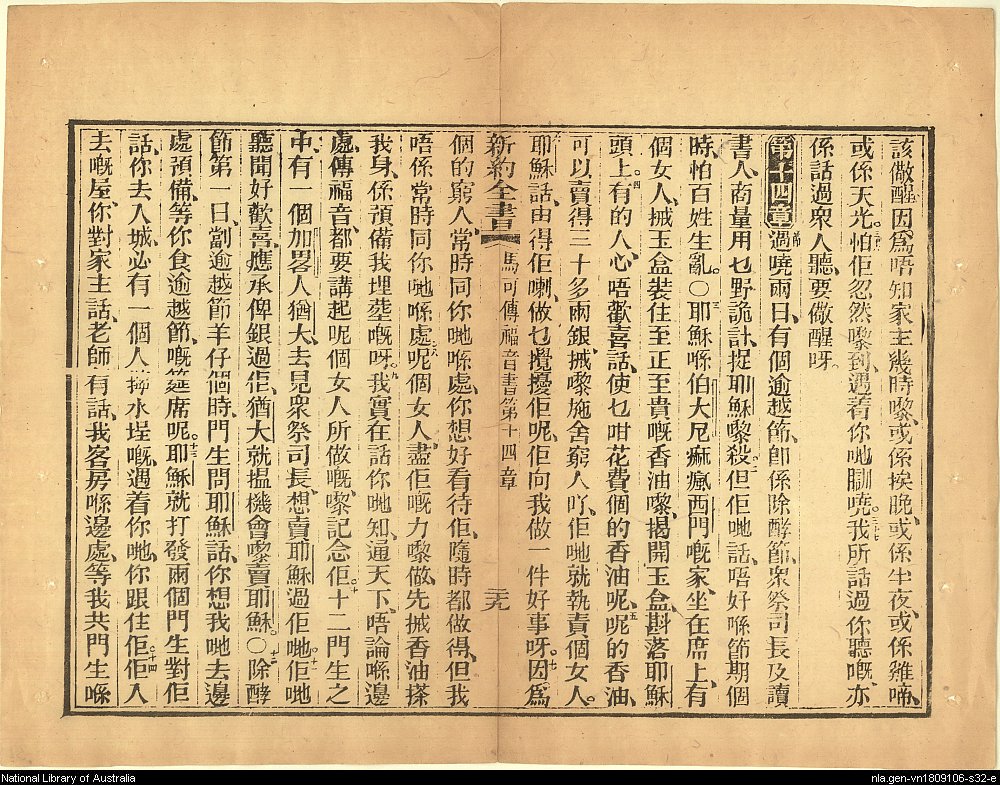 該儆醒因爲唔知家主幾時嚟、或係挨晚、或係半夜、或係雞啼、
或係天光。怕佢忽然嚟到、遇着你哋瞓喨。我所話過你聽嘅、亦
係話過衆人聽、要儆醒呀。
第十四章 過喨兩日、有個逾越節、卽係除酵節、衆祭司長及讀
書人、商量用乜野詭計、捉耶穌嚟殺。但佢哋話、唔好喺節期個
時、怕百姓生亂。〇耶穌喺伯大尼痲瘋西門嘅家、坐在席上、有
個女人、搣玉盒裝住至正至貴嘅香油嚟、揭開玉盒、斟落耶穌
頭上。有的人心唔歡喜話、使乜咁花費個的香油呢、呢的香油、
可以賣得三十多兩銀、搣嚟施舍窮人吖、佢哋就執責個女人。
耶穌話、由得佢喇、做乜攪擾佢呢、佢向我做一件好事呀。因爲
新約全書 馬可傳福音書第十四章 三九
個的窮人、常時同你哋喺處、你想好看待佢、隨時都做得、但我
唔係常時同你哋喺處。呢個女人、盡佢嘅力嚟做、先搣香油搽
我身、係預備我埋塟嘅呀。我實在話你哋知、通天下、唔論喺邊
處、傳福音、都要講起呢個女人所做嘅、嚟記念佢。十二門生之
中、有一個加畧人猶大、去見衆祭司長、想賣耶穌過佢哋。佢哋
聽聞好歡喜、應承俾銀過佢、猶大就揾機會嚟賣耶穌。〇除酵
節第一日、劏逾越節羊仔個時、門生問耶穌話、你想我哋去邊
處預備、等你食逾越節嘅筵席呢。耶穌就打發兩個門生、對佢
話、你去入城、必有一個人、拵水埕嘅、遇着你哋、你跟住佢。佢入
去嘅屋、你對家主話、老師有話、我客房喺邊處、等我共門生喺
National Library of Australia
nla.gen-vn1809106-s32-e